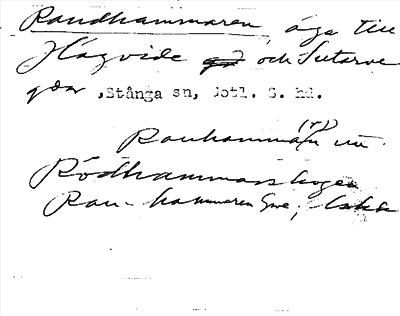 Raudhammaren, äga till
Hägvide och Sutarve
gdar, Stånga sn, Gotl. S. hd.
Rauhamma(r)n
Rödhammarshagen
Rau-hammaren